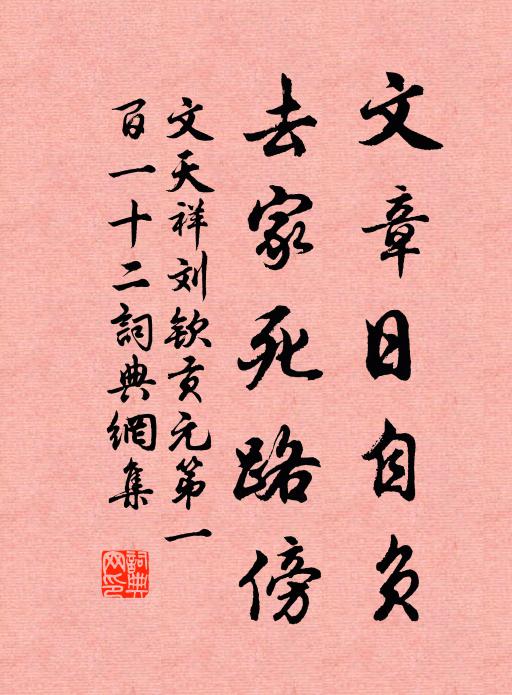 文章日自负
去家死路傍
文天祥刘钦贡元第一
百一十二詞典網集
詞典網印